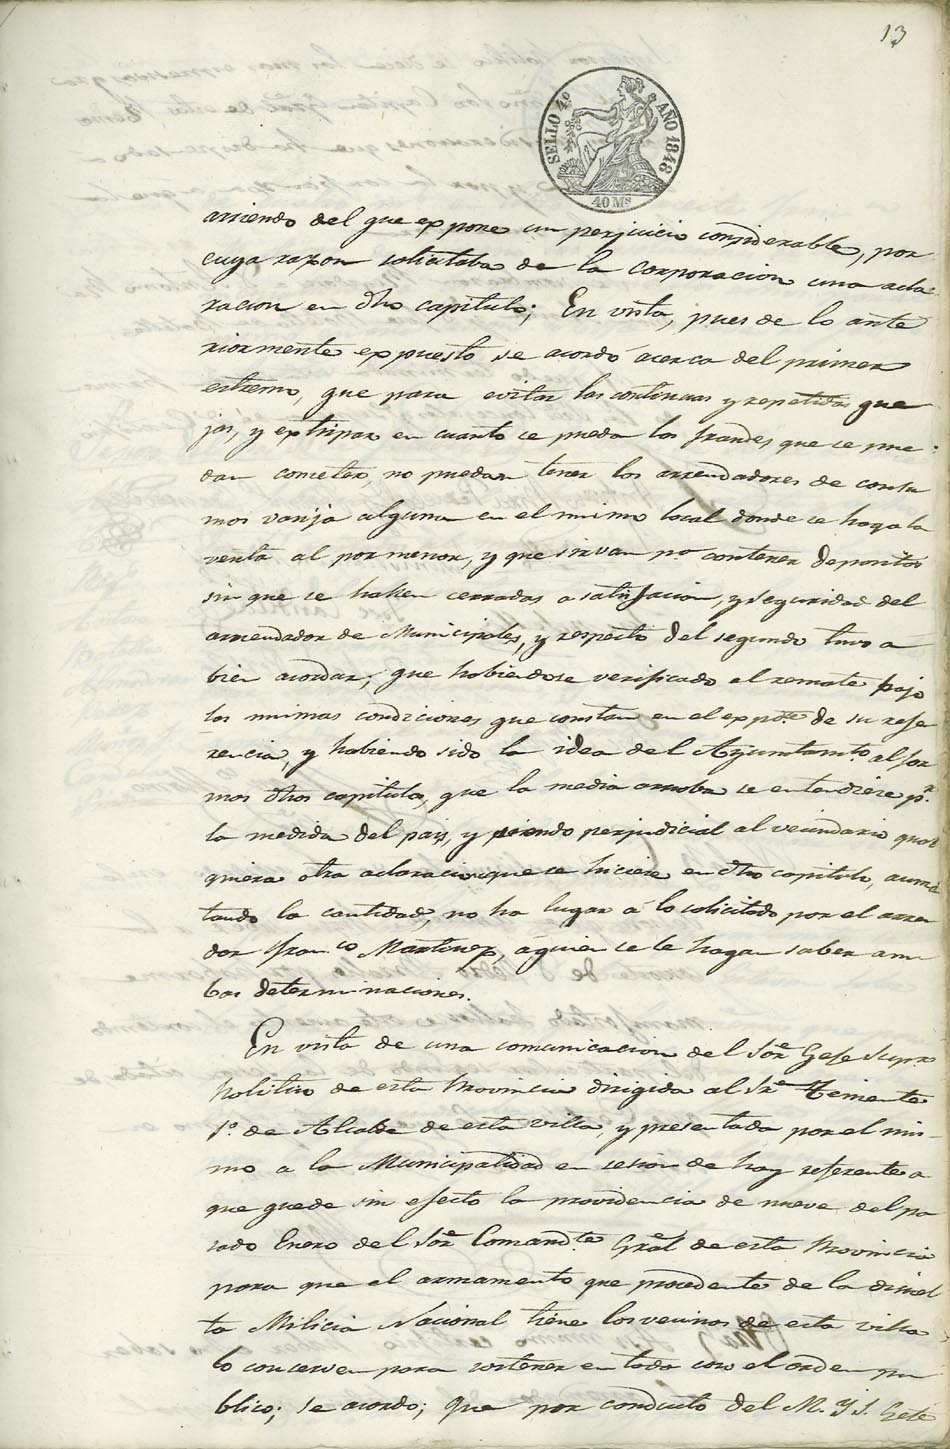 13
SELLO 4.º AÑO 1848
40 Ms
arriendo del que expone un perjuicio considerable, por
cuya razon solicitaba de la Corporacion una acla
racion en dho capitulo; En vista, pues de lo ante
riormente expuesto se acordó acerca del primer
estremo, que para evitar las continuas y repetidas que
jas, y extripar en cuanto se pueda los fraudes que se pue
dan cometer, no puedan tener los arrendadores de consu
mos vasija alguna en el mismo local donde se haga la
venta al por menor, y que sirvan pª contener depositos
sin que se hallen cerradas a satisfacion, y seguridad del
arrendador de Municipales, y respecto del segundo tuvo a
bien acordar; que habiendose verificado el remate bajo
las mismas condiciones que constan en el expte de su refe
rencia, y habiendo sido la idea del Ayuntamto al for
mar dhos capitulos, que la media arroba se entendiese pr
la medida del pais, y siendo perjudicial al vecindario qual
quiera otra aclaracion que se hiciere en dho capitulo, aumen
tando la cantidad, no ha lugar á lo solicitado por el arren
dor Franco Martinez, á quien se le hagan saber am
bas determinaciones.
En vista de una comunicacion del Sor Gefe Supr
Politico de esta Provincia dirigida al Sr Teniente
1º de Alcalde de esta villa, y presentada por el mis
mo a la Municipalidad en sesion de hoy referente a
que quede sin efecto la providencia de nueve del pa
sado Enero del Sor Comandte Gral de esta Provincia
para que el armamento que procedente de la disuel
ta Milicia Nacional tiene los vecinos de esta villa
lo conserven para sostener en todo caso el orden pu
blico; se acordo; que por conducto del M. Y S. Gefe